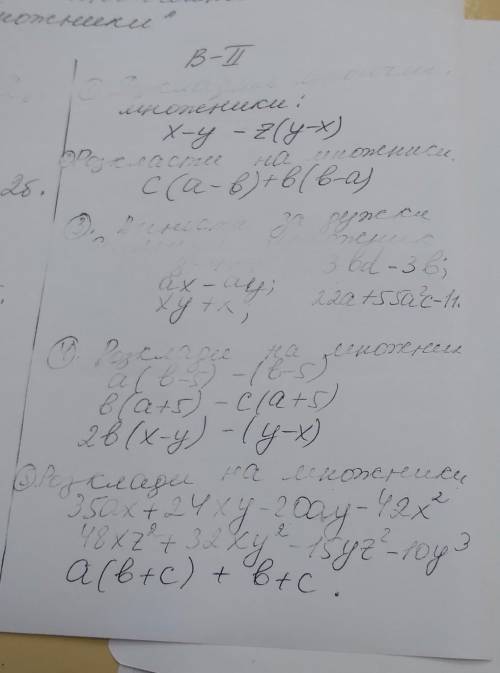 множники"
В-II
множники:
x-y - z(y-x)
2б.
② Розкласти на множники.
c(a-в)+в(в-a)
③. Винести за дужки
3вd-3в;
ax-ay;
xy+x,
22a+55a²c-11.
④. Розклади на множник
a(в-5) - (в-5)
в(a+5) - c(a+5)
2в(x-y) - (y-x)
⑤ Розклади на множники
35ax+24xy-20ay-42x²
48xz²+32xy²-15yz²-10y³
a(в+c) + в+c.